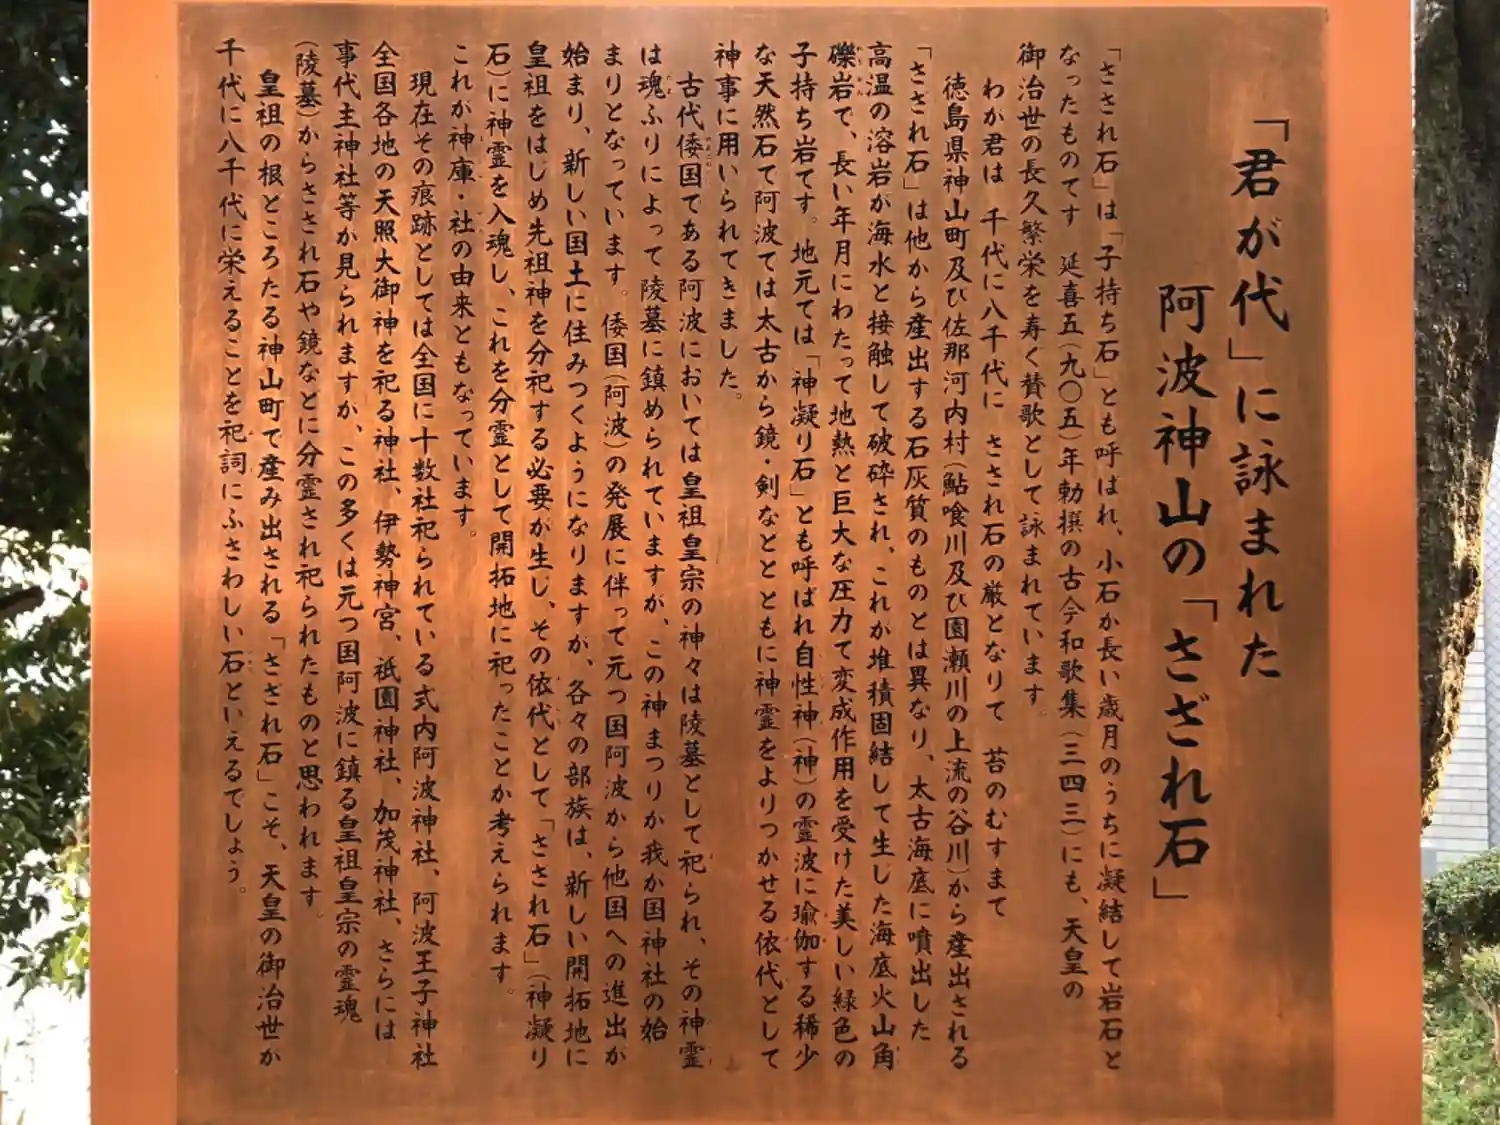 「君が代」に詠まれた
阿波神山の「さざれ石」
「さされ石」は「子持ち石」とも呼ばれ、小石か長い歳月のうちに凝結して岩石と
なったものてす　延喜五(九〇五)年勅撰の古今和歌集(三四三)にも、天皇の
御治世の長久繁栄を寿く賛歌として詠まれています。
わが君は　千代に八千代に　さされ石の巌となりて　苔のむすまて
徳島県神山町及び佐那河内村(鮎喰川及び園瀬川の上流の谷川)から産出される
「さされ石」は他から産出する石灰質のものとは異なり、太古海底に噴出した
高温の溶岩が海水と接触して破砕され、これが堆積固結して生した海底火山角
礫岩で、長い年月にわたって地熱と巨大な圧力て変成作用を受けた美しい緑色の
子持ち岩てす。地元ては「神凝り石」とも呼ばれ自性神(神)の霊波に瑜伽する稀少
な天然石て阿波ては太古から鏡・剣なととともに神霊をよりつかせる依代として
神事に用いられてきました。
古代倭国である阿波においては皇祖皇宗の神々は陵墓として祀られ、その神霊
は魂ふりによって陵墓に鎮められていますが、この神まつりか我か国神社の始
まりとなっています。倭国(阿波)の発展に伴って元つ国阿波から他国への進出が
始まり、新しい国土に住みつくようになりますが、各々の部族は、新しい開拓地に
皇祖をはじめ先祖神を分祀する必要が生し、その依代として「さされ石」(神凝り
石)に神霊を入魂し、これを分霊として開拓地に祀ったことか考えられます。
これが神庫・社の由来ともなっています。
現在その痕跡としては全国に十数社祀られている式内阿波神社、阿波王子神社
全国各地の天照大御神を祀る神社、伊勢神宮、祇園神社、加茂神社、さらには
事代主神社等か見られますか、この多くは元つ国阿波に鎮る皇祖皇宗の霊魂
(陵墓)からさされ石や鏡なとに分霊され祀られたものと思われます。
皇祖の根ところたる神山町で産み出される「さざれ石」こそ、天皇の御治世か
千代に八千代に栄えることを祀詞にふさわしい石といえるでしょう。